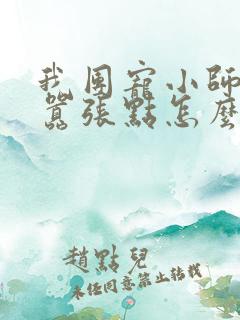 我團寵小師
囂張點怎麼
趙點兒
未經同意禁止轉載